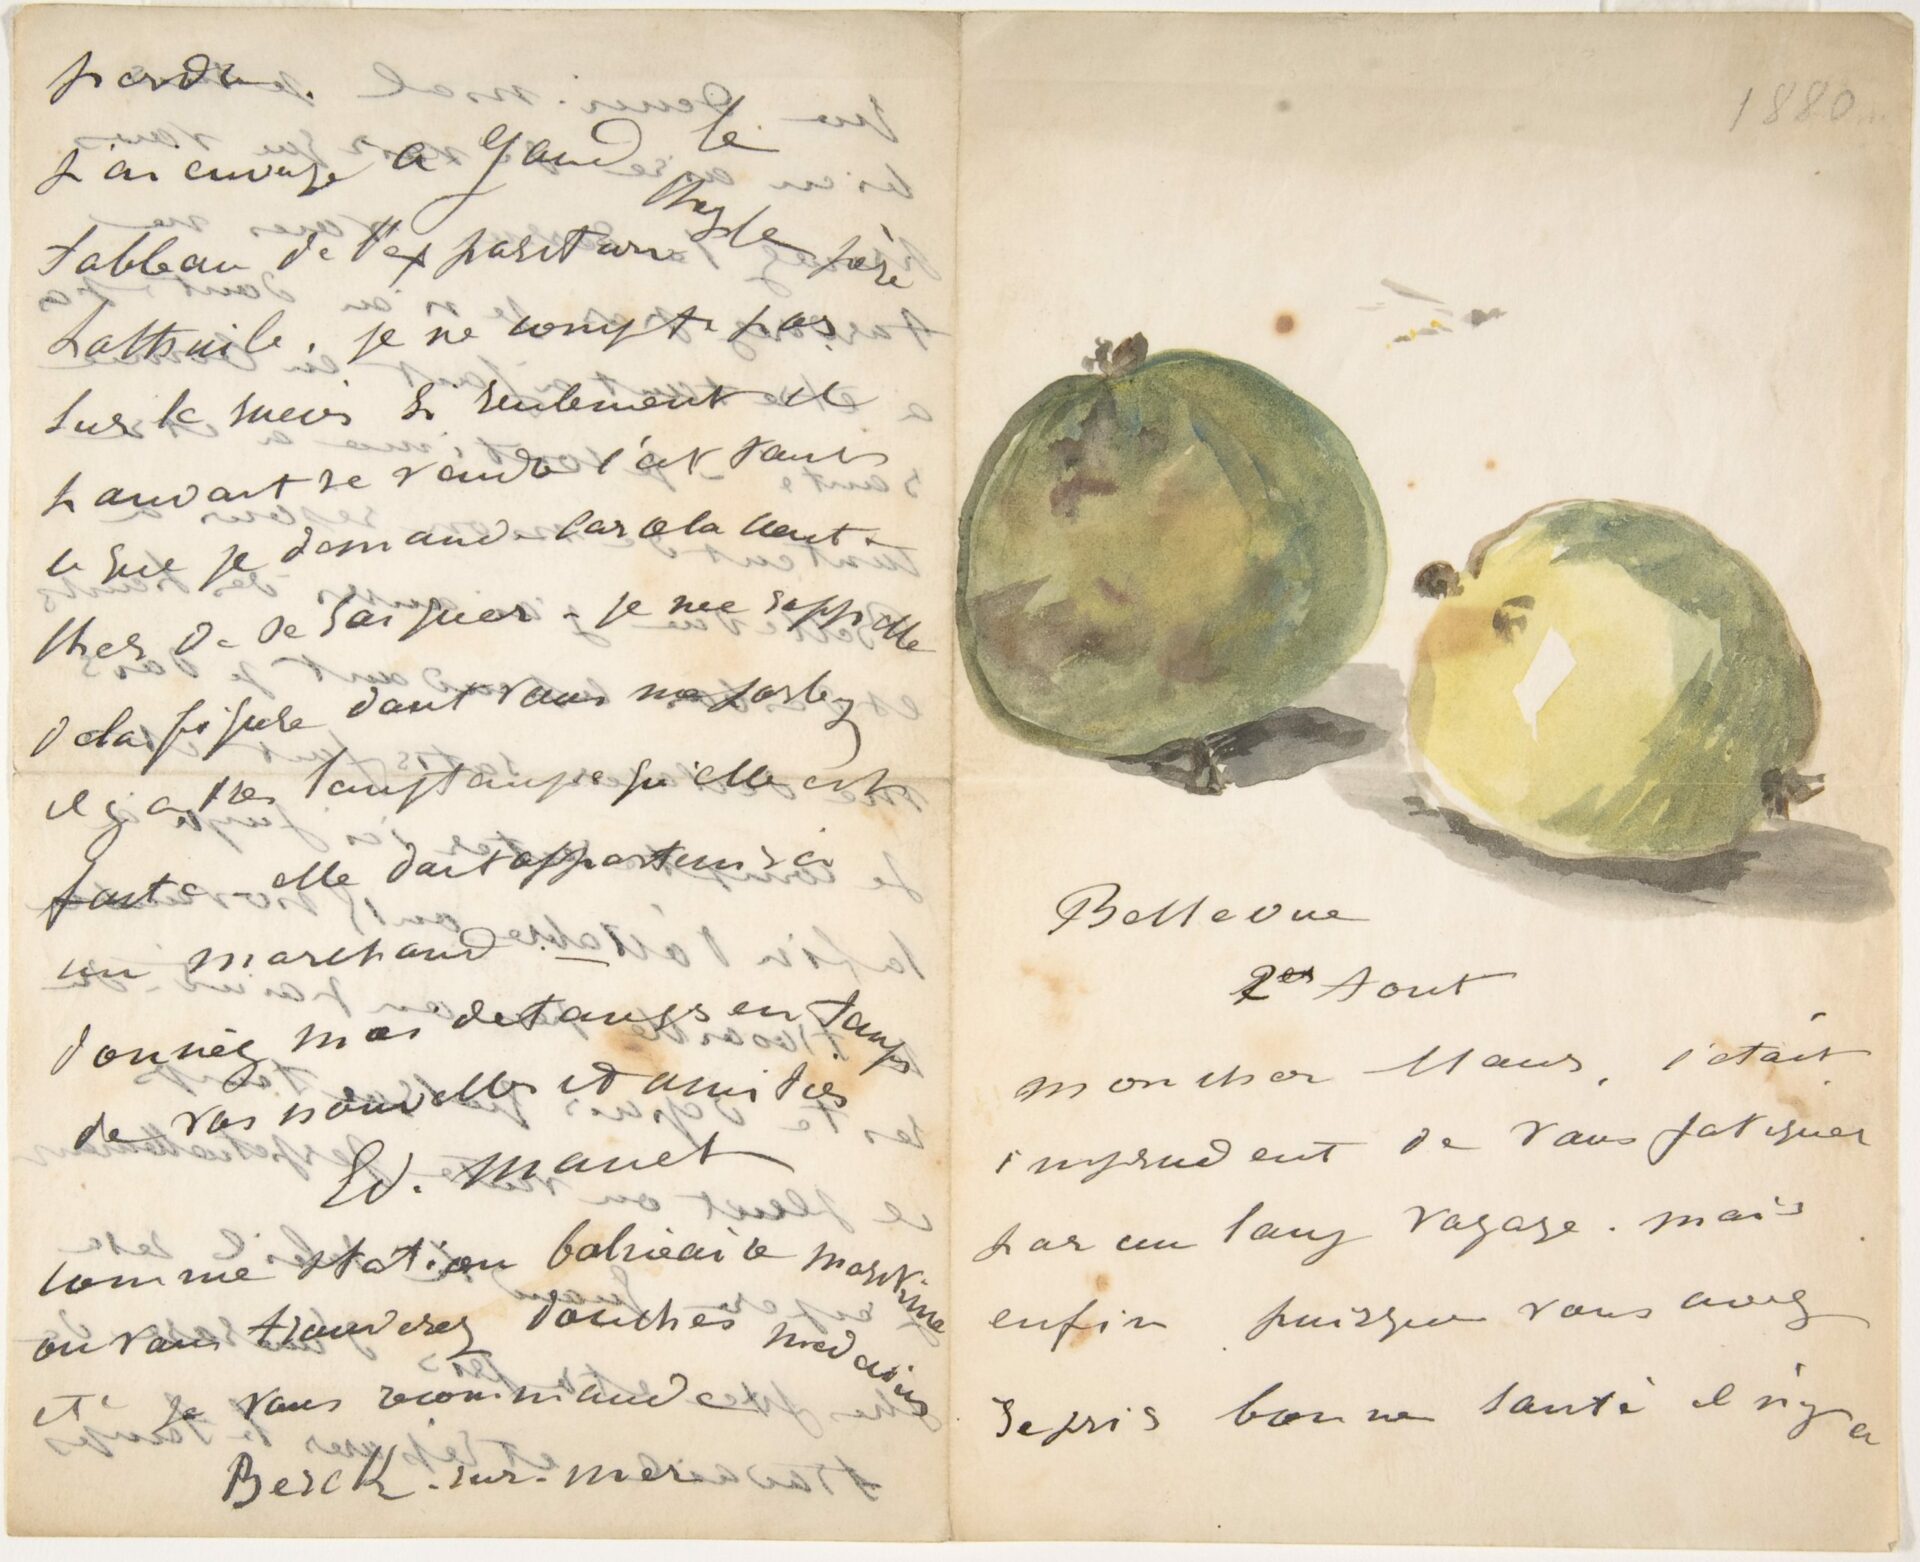 1880
Bellevue
2 Aout
mon cher Maus, c'était
imprudent de vous fatiguer
par un long voyage. mais
enfin puisque vous avez
repris bonne santé il n'y a
perdu.
j'ai envoyé a Gand le
tableau de l'exposition chez le père
Lathuile, je ne compte pas
sur le succès si seulement il
pouvait se vendre c'est tout
ce que je demande car cela coute
cher de se soigner - je me rappelle
de la figure dont vous me parlez
il y a très longtemps qu'elle est
faite elle doit appartenir à
un marchand.
donnez moi de temps en temps
de vos nouvelles et amitiés
Ed. Manet
comme station balnéaire maritime
ou vous trouverez douches médecins
etc je vous recommande
Berck-sur-mer